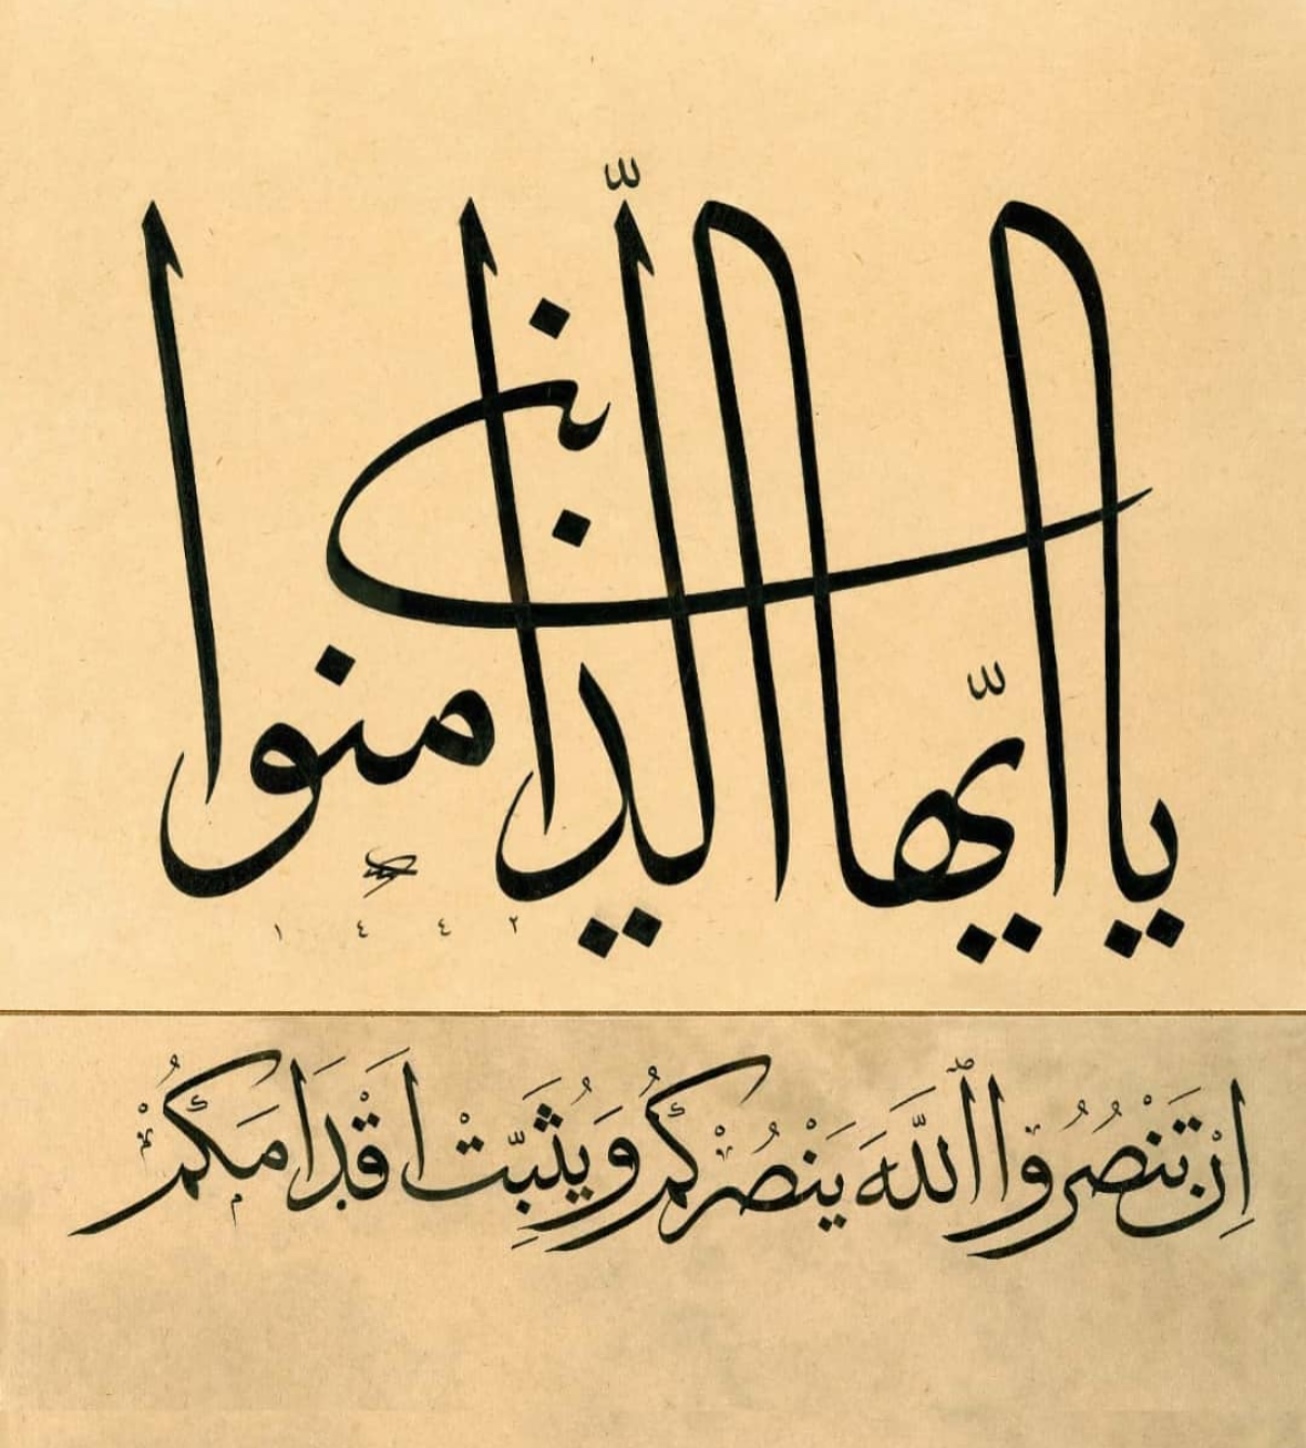 يا ايّها الّذين امنوا
١٤٤٢
اِنْ تَنْصُرُوا اللّٰهَ يَنْصُرْكُمْ وَيُثَبِّتْ اَقْدَامَكُمْ